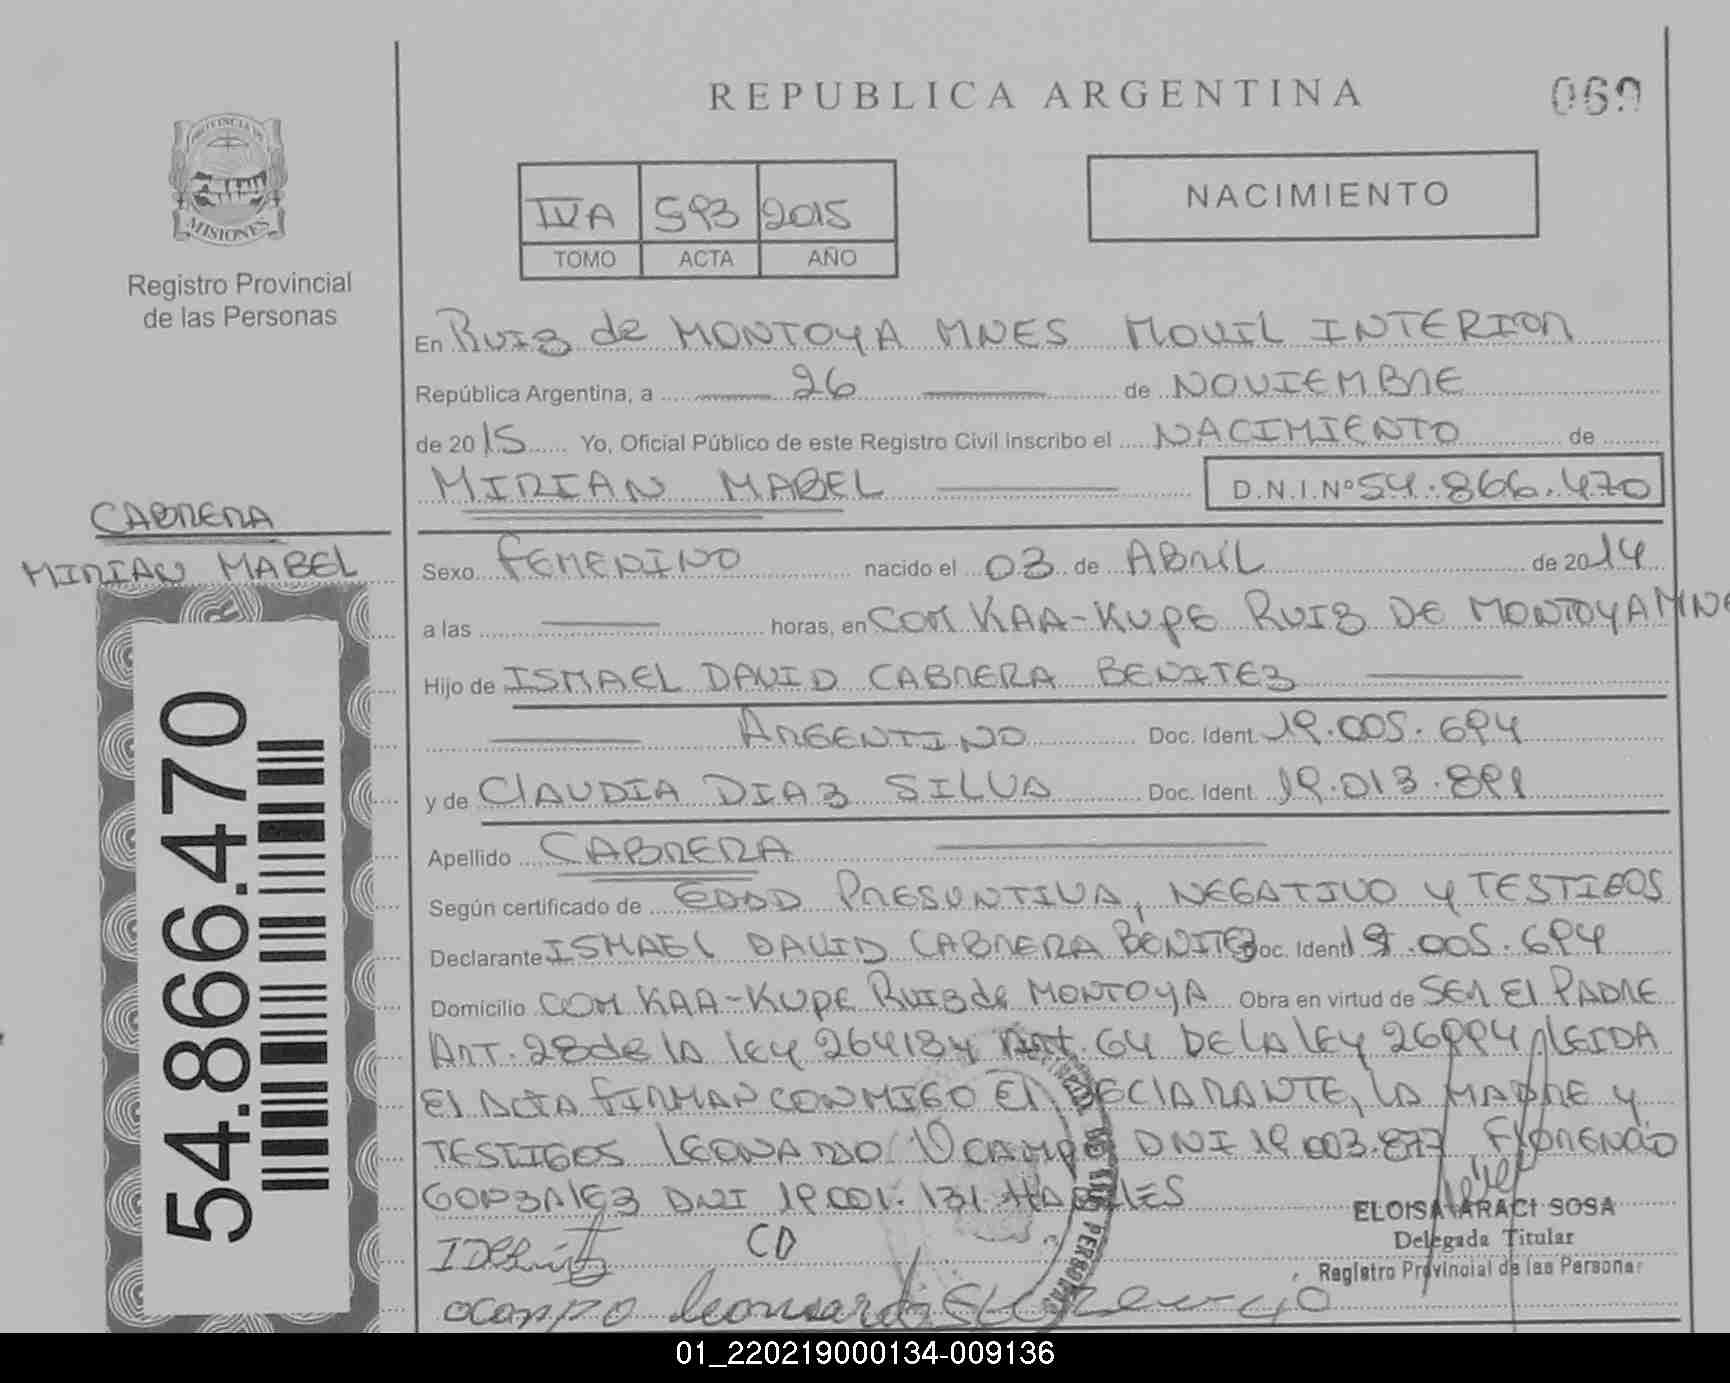 REPUBLICA ARGENTINA
060
PROVINCIA DE
MISIONES
Registro Provincial
de las Personas
IVA 593 2015
TOMO ACTA AÑO
NACIMIENTO
En Ruiz de MONTOYA MNES MOVIL INTERIOR
República Argentina, a 26 de NOVIEMBRE
de 2015 Yo, Oficial Público de este Registro Civil inscribo el NACIMIENTO de
MIRIAN MABEL D.N.I.Nº 54.866.470
CABRERA
MIRIAN MABEL
54.866.470
Sexo FEMENINO nacido el 03 de ABRIL de 2014
a las horas, en COM KAA-KUPE RUIZ DE MONTOYA MNE
Hijo de ISMAEL DAVID CABRERA BENITEZ
ARGENTINO Doc. Ident. 19.005.694
y de CLAUDIA DIAZ SILVA Doc. Ident. 19.013.891
Apellido CABRERA
Según certificado de EDAD PRESUNTIVA, NEGATIVO Y TESTIGOS
Declarante ISMAEL DAVID CABRERA BENITEZ Doc. Ident 19.005.694
Domicilio COM KAA-KUPE Ruiz de MONTOYA Obra en virtud de SER El PADRE
ART. 28 de lA lEy 26413 y Art. 64 DE LA lEy 26994 LEIDA
El ACTA fIRMAN CONMIGO El DECLARANTE, LA MADRE y
TESTIGOS LEONARDO OCAMPO DNI 19.003.877 FLORENCIO
GONZALEZ DNI 19.001.131 HABILES
CD
ocampo leonardo
ELOISA ARACI SOSA
Delegada Titular
Registro Provincial de las Personas
01_220219000134-009136